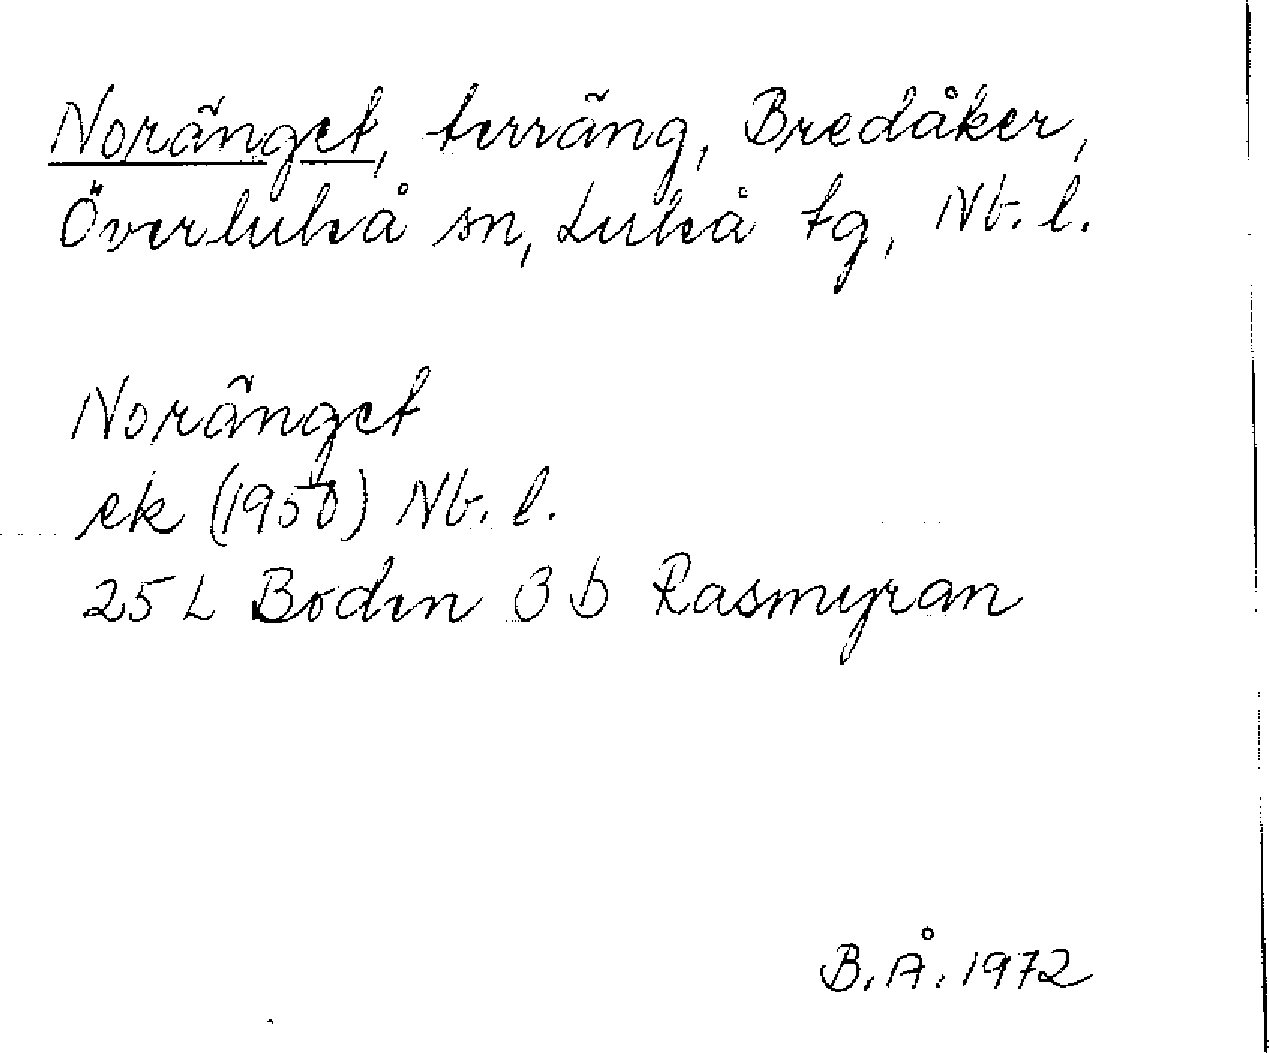 Noränget, terräng, Bredåker,
Överluleå sn, Luleå tg, Nb. l.
Noränget
ek (1950) Nb. l.
25 L Boden 3 b Rasmyran
B. Å. 1972